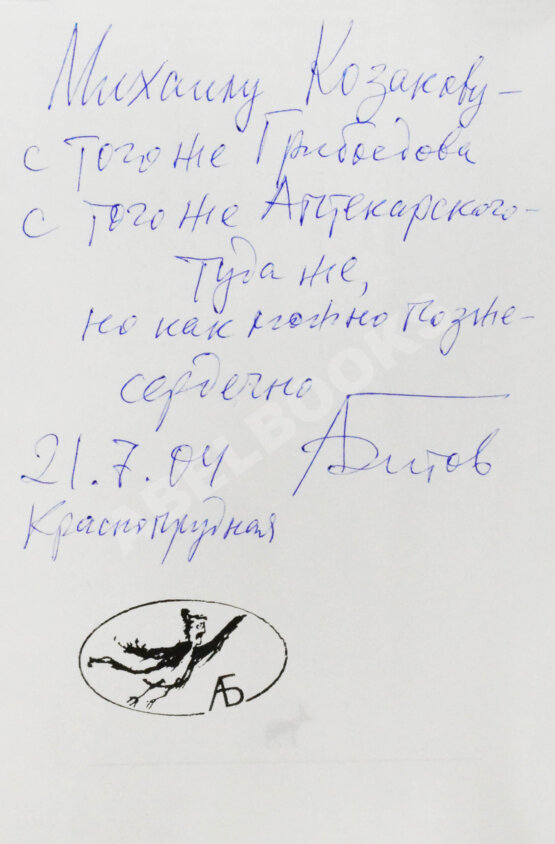 Михаилу Козакову –
с того же Грибоедова
с того же Аптекарского –
туда же,
но как можно позже –
сердечно
21.7.04 АБитов
Краснопрудная
АБ
ABELBOOKS